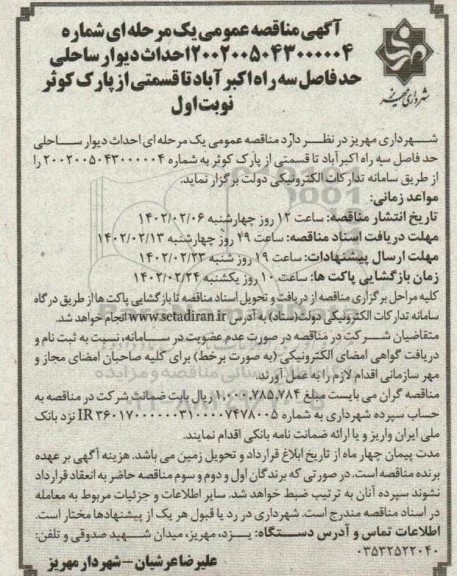 آگهی مناقصه عمومی یک مرحله ای شماره
۲۰۰۲۰۰۵۰۴۳۰۰۰۰۰۴ احداث دیوار ساحلی
حد فاصل سه راه اکبر آباد تا قسمتی از پارک کوثر
نوبت اول
شهرداری مهریز
شهرداری مهریز در نظر دارد مناقصه عمومی یک مرحله ای احداث دیوار ساحلی
حد فاصل سه راه اکبرآباد تا قسمتی از پارک کوثر به شماره ۲۰۰۲۰۰۵۰۴۳۰۰۰۰۰۴ را
از طریق سامانه تدارکات الکترونیکی دولت برگزار نماید.
مواعد زمانی:
تاریخ انتشار مناقصه: ساعت ۱۲ روز چهارشنبه ۱۴۰۲/۰۲/۰۶
مهلت دریافت اسناد مناقصه: ساعت ۱۹ روز چهارشنبه ۱۴۰۲/۰۲/۱۳
مهلت ارسال پیشنهادات: ساعت ۱۹ روز شنبه ۱۴۰۲/۰۲/۲۳
زمان بازگشایی پاکت ها: ساعت ۱۰ روز یکشنبه ۱۴۰۲/۰۲/۲۴
کلیه مراحل برگزاری مناقصه از دریافت و تحویل اسناد مناقصه تا بازگشایی پاکت ها از طریق درگاه
سامانه تدارکات الکترونیکی دولت (ستاد) به آدرس www.setadiran.ir انجام خواهد شد.
متقاضیان شرکت در مناقصه در صورت عدم عضویت در سامانه، نسبت به ثبت نام و
دریافت گواهی امضای الکترونیکی (به صورت برخط) برای کلیه صاحبان امضای مجاز و
مهر سازمانی اقدام لازم را به عمل آورند.
مناقصه گران می بایست مبلغ ۱،۰۰۰،۷۸۵،۷۸۴ ریال بابت ضمانت شرکت در مناقصه به
حساب سپرده شهرداری به شماره IR ۳۶۰۱۷۰۰۰۰۰۰۳۱۰۰۰۰۷۴۷۸۰۰۵ نزد بانک
ملی ایران واریز و یا ارائه ضمانت نامه بانکی اقدام نمایند.
مدت پیمان چهار ماه از تاریخ ابلاغ قرارداد و تحویل زمین می باشد. هزینه آگهی بر عهده
برنده مناقصه است. در صورتی که برندگان اول و دوم و سوم مناقصه حاضر به انعقاد قرارداد
نشوند سپرده آنان به ترتیب ضبط خواهد شد. سایر اطلاعات و جزئیات مربوط به معامله
در اسناد مناقصه مندرج است. شهرداری در رد یا قبول هر یک از پیشنهادها مختار است.
اطلاعات تماس و آدرس دستگاه: یزد، مهریز، میدان شهید صدوقی و تلفن:
۰۳۵۳۲۵۲۲۰۴۰
علیرضا عرشیان - شهردار مهریز